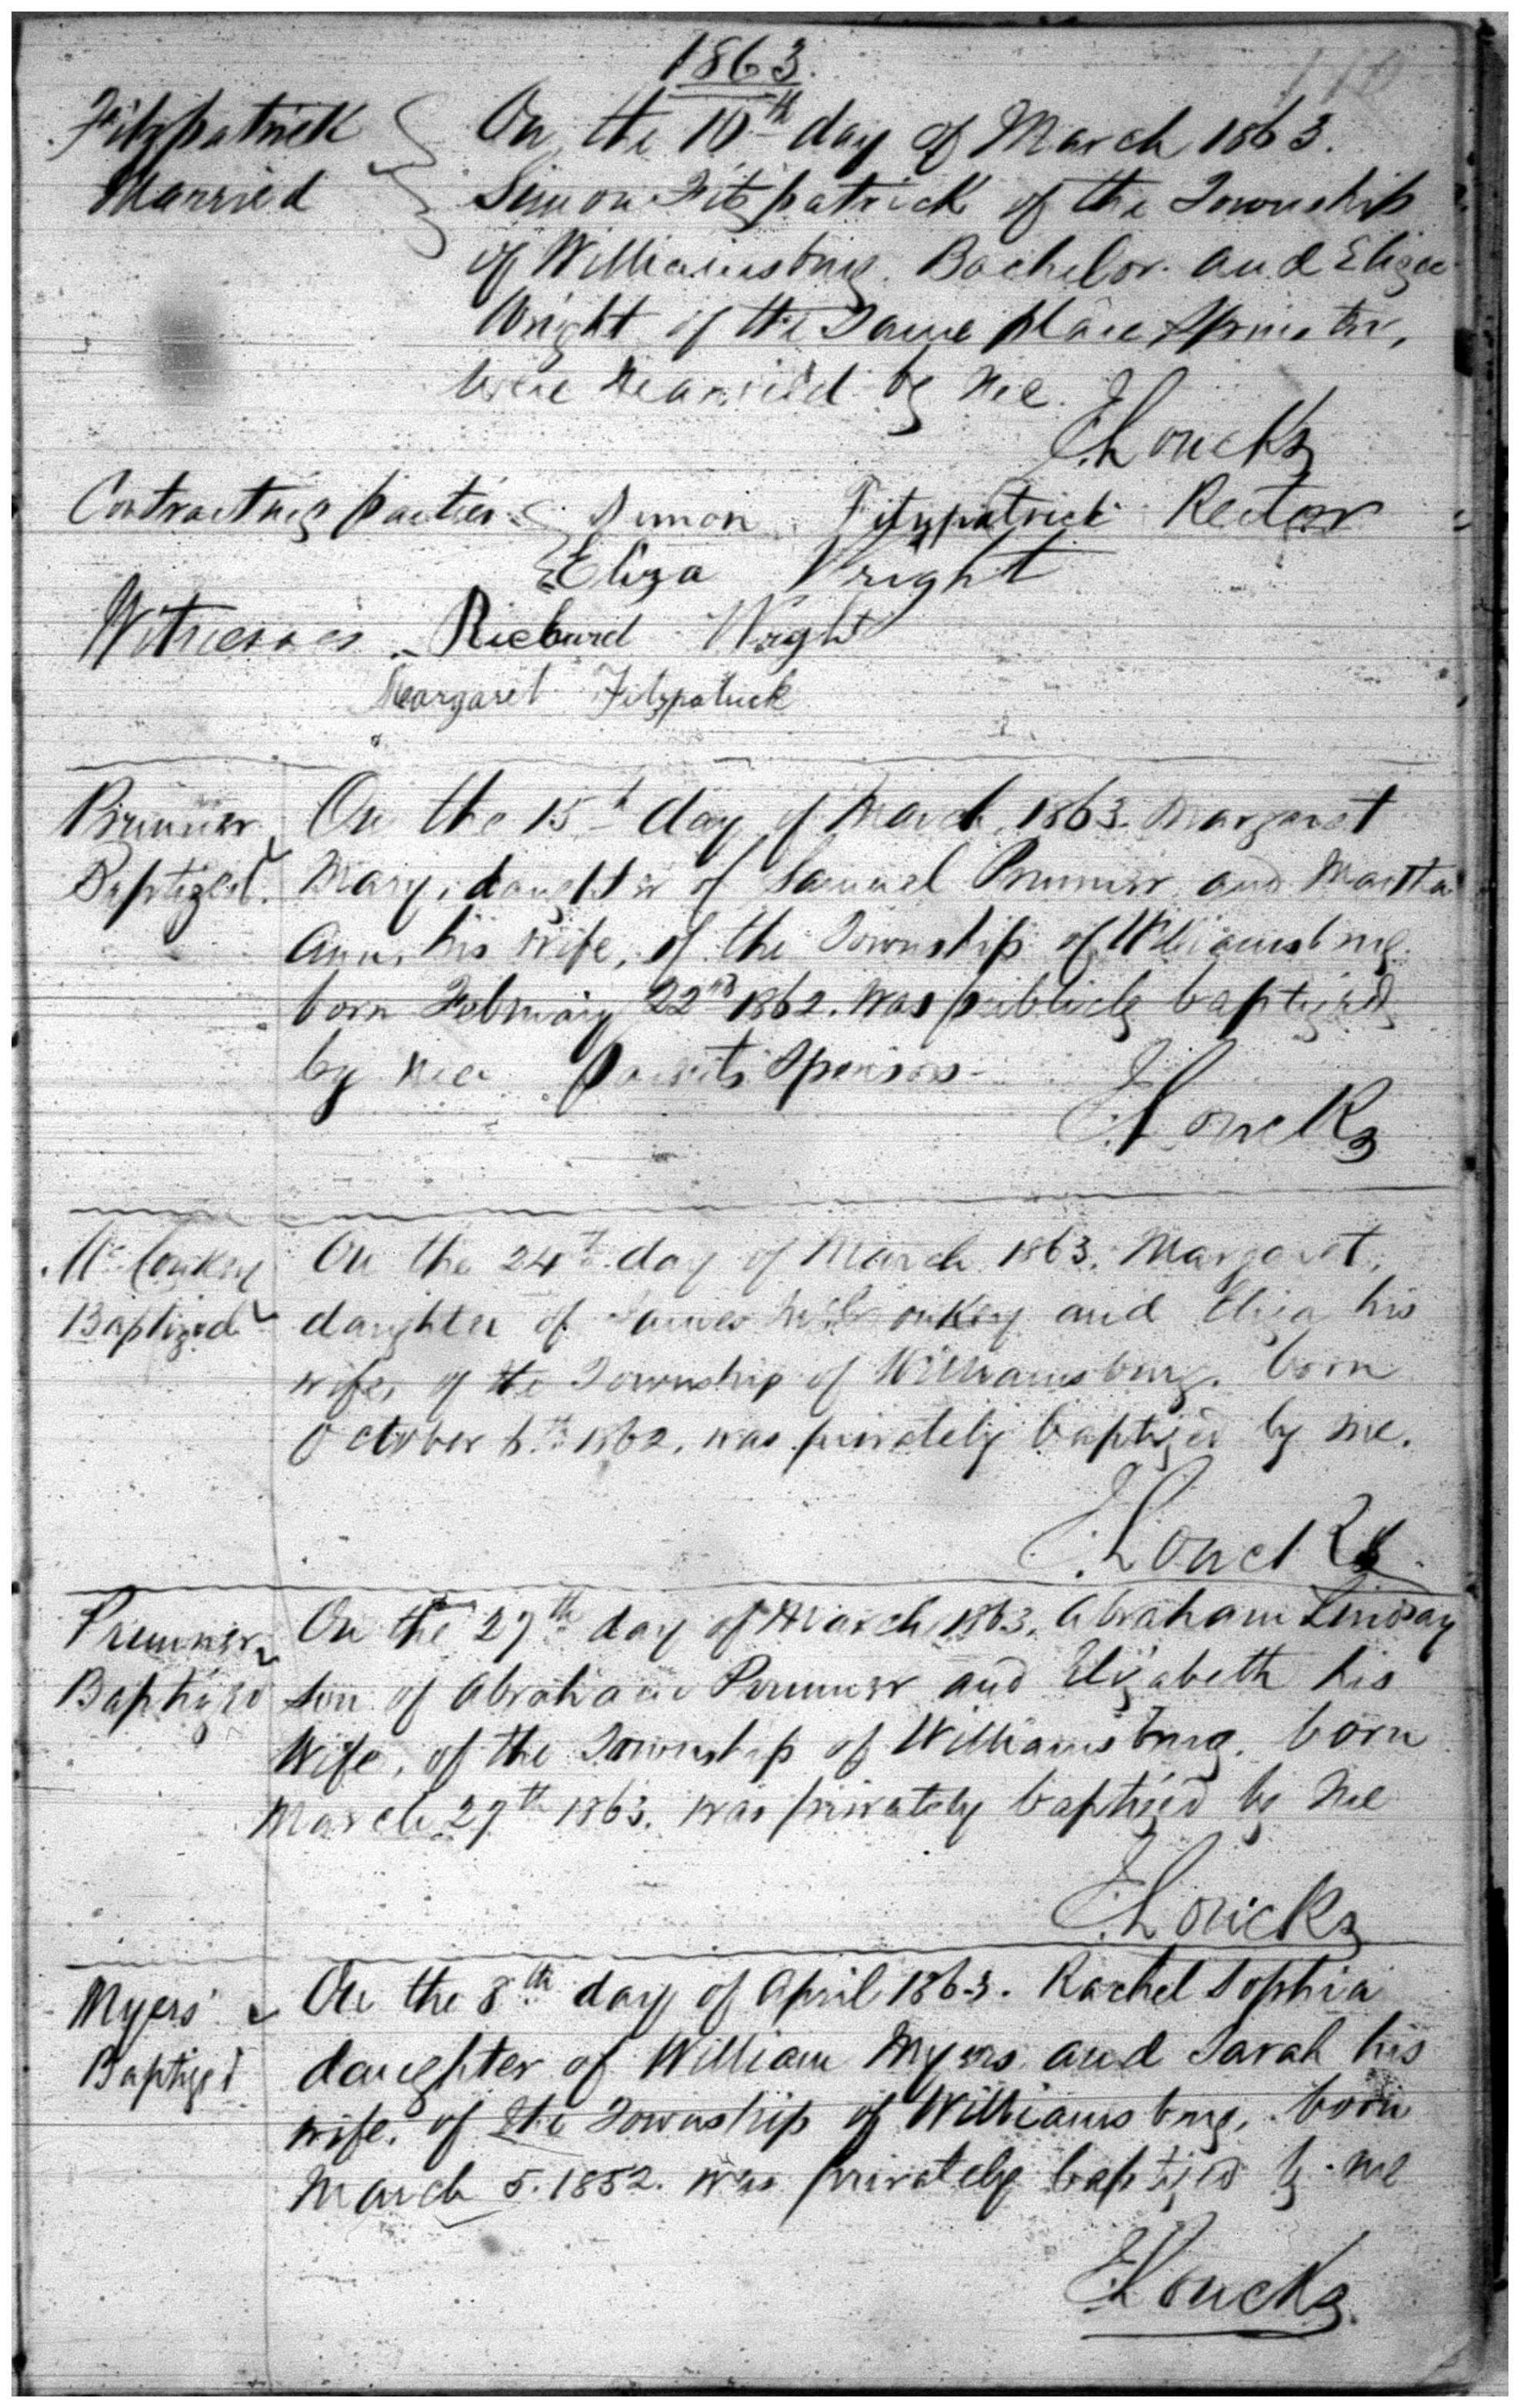 1863.
Fitzpatrick On the 10th day of March 1863.
Married Simon Fitzpatrick of the Township
of Williamsburg. Bachelor and Eliza
Wright of the Same place Spinster,
were Married by me.
E Loucks
Contracting parties Simon Fitzpatrick Rector
Eliza Wright
Witnesses Richard Wright
Margaret Fitzpatrick
Prunner On the 15th day of March 1863. Margaret
Baptized. Mary, daughter of Samuel Prunner and Martha
Ann, his wife, of the Township of Williamsburg
born February 22nd 1862. was publicly baptized
by me Parents Sponsors-
E Loucks
McConkey On the 24th day of March 1863. Margaret,
Baptized daughter of James McConkey and Eliza his
wife, of the Township of Williamsburg. born
October 6th 1862. was privately baptized by me.
E Loucks
Prunner On the 27th day of March 1863. Abraham Lindsay
Baptized son of Abraham Prunner and Elizabeth his
Wife, of the Township of Williamsburg. born
March 27th 1863. was privately baptized by me
E Loucks
Myers On the 8th day of April 1863. Rachel Sophia
Baptized daughter of William Myers and Sarah his
wife. of the Township of Williamsburg, born
March 5. 1852. was privately baptized by me
E Loucks